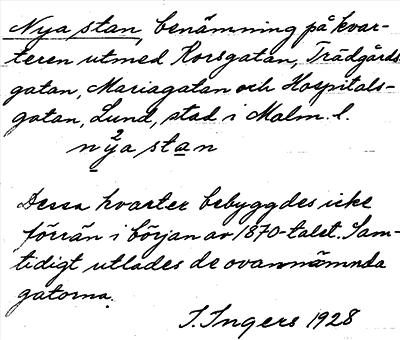 Nya stan, benämning på kvar-
teren utmed Korsgatan, Trädgårds
gatan, Mariagatan och Hospitals-
gatan, Lund, stad i Malm. l.
n²ya stan
Dessa kvarter bebyggdes icke
förrän i början av 1870-talet. Sam-
tidigt utlades de ovannämnda
gatorna.
I. Ingers 1928